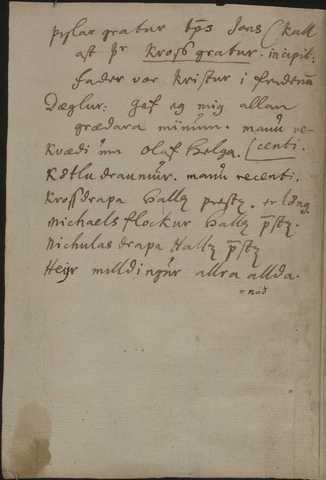 pyslar gratur bps Jons Kall
ast pr krossgratur. incipit.
fader vor kristur i fridenn
Dæglur: gef eg mig allan
grædara minum. manu re-
kvædi um olaf helga. (centi.
Kötlu draumur. manu recenti.
krossdrapa hallz prestz.
michaels flockur hallz pstz.
Nichulas drapa Hallz pstz
Heijr milldingur allra allda.
= nád